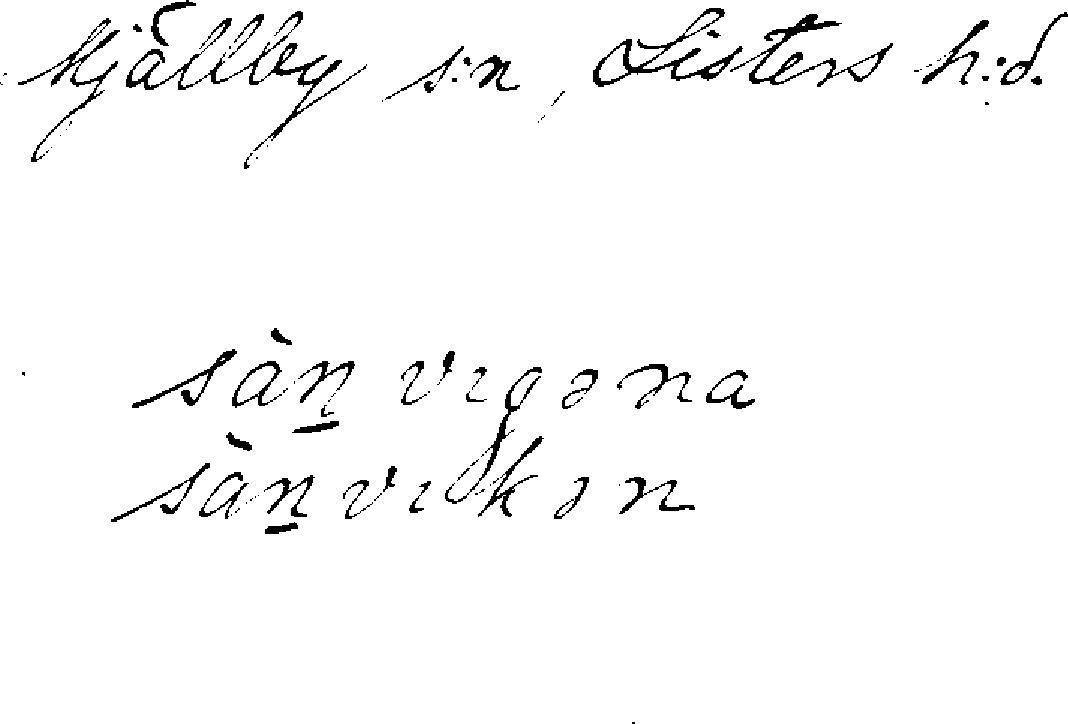 Mjällby s:n, Listers h:d.
sàn̲ vıgəna
sàn̲vıkən